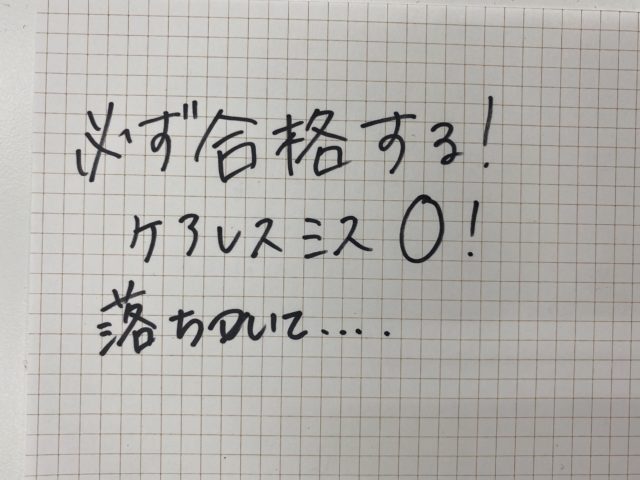 必ず合格する!
ケアレスミス0!
落ちついて.....